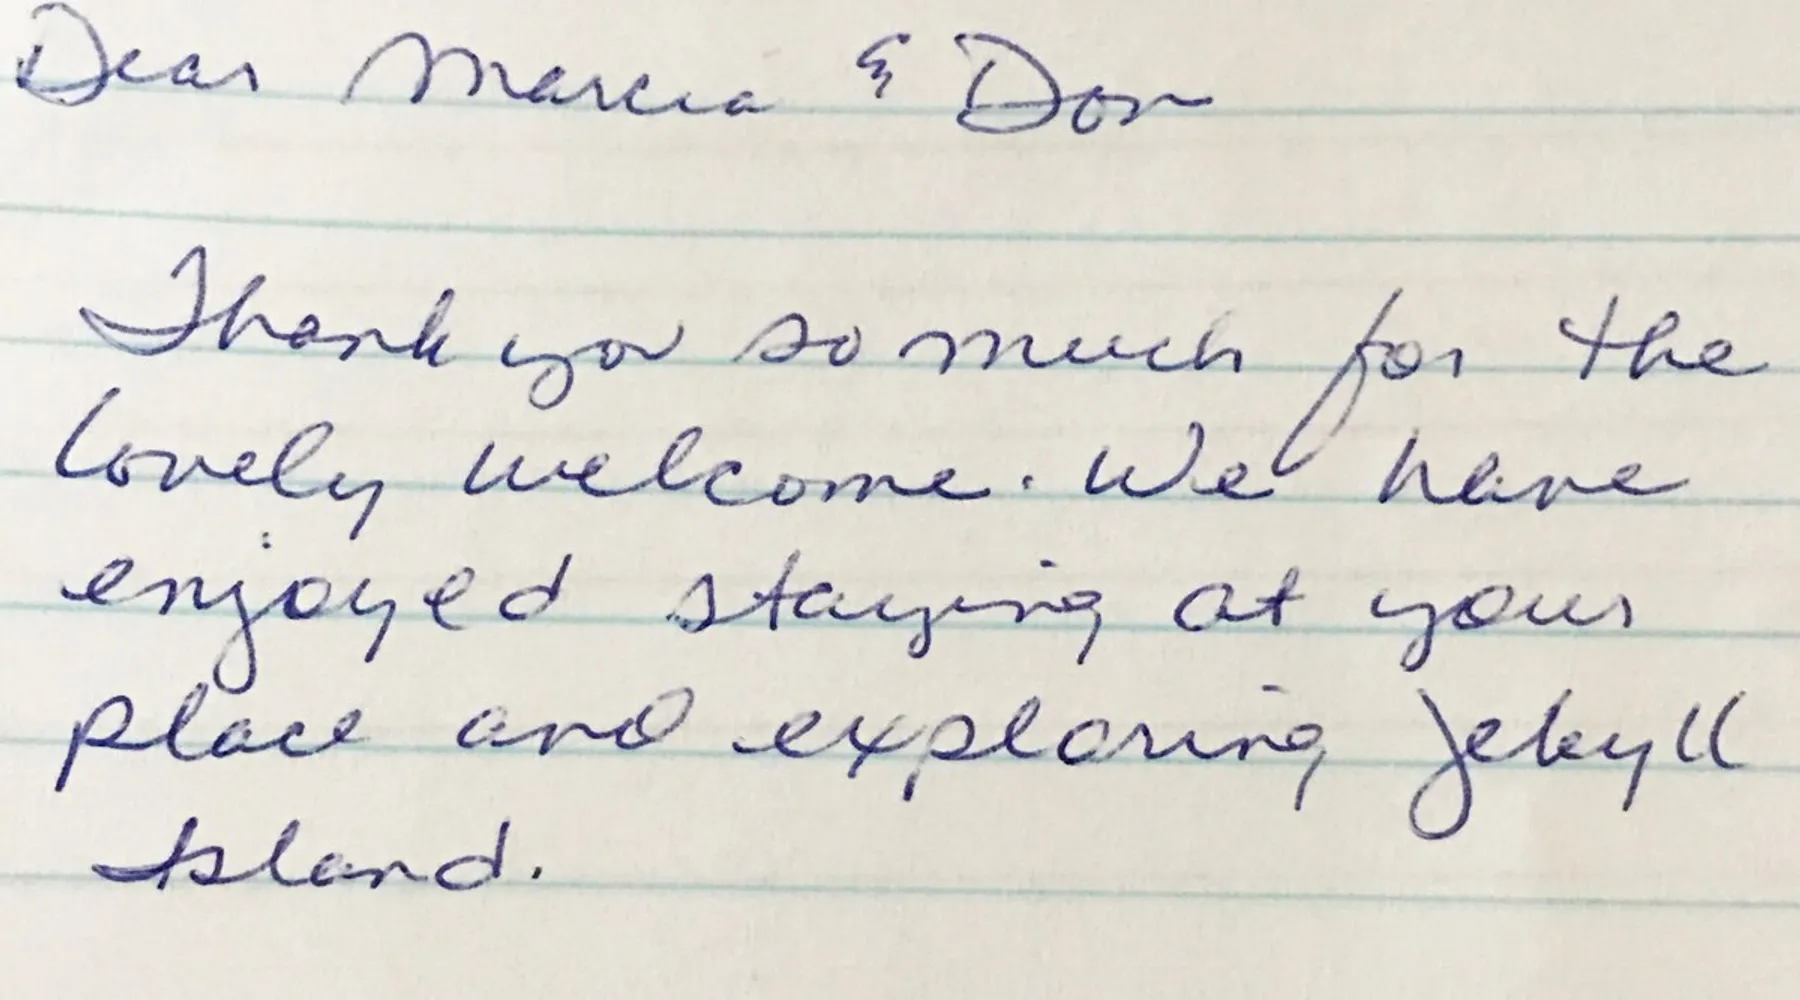 Dear Marcia & Don
Thank you so much for the
lovely welcome. We have
enjoyed staying at your
place and exploring Jekyll
Island.